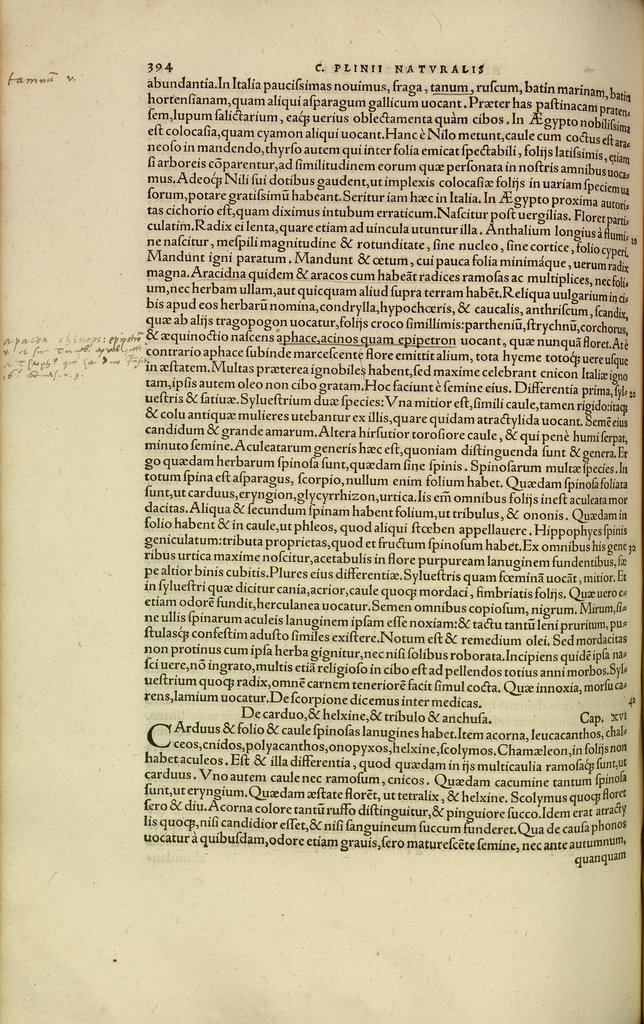 394
C. PLINII NATVRALIS
tamnū v.
abundantia.In Italia paucissimas nouimus, fraga, tanum, ruscum, batin marinam, batin
hortensianam,quam aliqui asparagum gallicum uocant. Præter has pastinacam praten-
sem,lupum salictarium, eacq; uerius oblectamenta quàm cibos. In Ægypto nobilissima
est colocasia,quam cyamon aliqui uocant.Hanc è Nilo metunt,caule cum coctus est ara-
neoso in mandendo,thyrso autem qui inter folia emicat spectabili, folijs latissimis, etiam
si arboreis cōparentur,ad similitudinem eorum quæ personata in nostris amnibus uoca-
mus. Adeoq; Nili sui dotibus gaudent,ut implexis colocasiæ folijs in uariam speciem ua
sorum,potare gratissimū habeant.Seritur iam hæc in Italia. In Ægypto proxima autori-
tas cichorio est,quam diximus intubum erraticum.Nascitur post uergilias. Floret parti-
culatim.Radix ei lenta,quare etiam ad uincula utuntur illa. Anthalium longius à flumi-
10
ne nascitur, mespili magnitudine & rotunditate, sine nucleo, sine cortice, folio cyperi.
Mandunt igni paratum. Mandunt & œtum, cui pauca folia minimáque, uerum radix
magna.Aracidna quidem & aracos cum habeāt radices ramosas ac multiplices, nec foli-
um,nec herbam ullam,aut quicquam aliud supra terram habēt.Reliqua uulgarium in ci-
bis apud eos herbarū nomina,condrylla,hypochœris, & caucalis, anthriscum, scandix,
quæ ab alijs tragopogon uocatur,folijs croco simillimis: partheniū,strychnū,corchorus,
& æquinoctio nascens aphace,acinos quam epipetron uocant, quæ nunquā floret. At è
contrario aphace subinde marcescente flore emittit alium, tota hyeme totoq; uere usque
in æstatem. Multas præterea ignobiles habent,sed maxime celebrant cnicon Italiæ igno
tam,ipsis autem oleo non cibo gratam.Hoc faciunt è semine eius. Differentia prima,syl-
20
uestris & satiuæ. Syluestrium duæ species: Vna mitior est,simili caule,tamen rigido:itaq;
& colu antiquæ mulieres utebantur ex illis,quare quidam atractylida uocant. Semē eius
candidum & grande amarum. Altera hirsutior torosiore caule, & qui penè humi serpat,
minuto semine. Aculeatarum generis hæc est,quoniam distinguenda sunt & genera. Er
go quædam herbarum spinosa sunt,quædam sine spinis. Spinosarum multæ species. In
totum spina est asparagus, scorpio,nullum enim folium habet. Quædam spinosa foliata
sunt,ut carduus,eryngion,glycyrrhizon,urtica.Iis em̄ omnibus folijs inest aculeata mor
dacitas. Aliqua & secundum spinam habent folium,ut tribulus, & ononis. Quædam in
folio habent & in caule,ut phleos, quod aliqui stœben appellauere. Hippophyes spinis
geniculatum:tributa proprietas,quod et fructum spinosum habet.Ex omnibus his gene
30
ribus urtica maxime noscitur,acetabulis in flore purpuream lanuginem fundentibus,sæ
pe altior binis cubitis.Plures eius differentiæ.Syluestris quam fœminā uocāt, mitior. Et
in syluestri quæ dicitur cania,acrior,caule quoq; mordaci, fimbriatis folijs. Quæ uero e-
etiam odorē fundit,herculanea uocatur. Semen omnibus copiosum, nigrum. Mirum,si-
ne ullis spinarum aculeis lanuginem ipsam esse noxiam:& tactu tantū leni pruritum, pu-
stulasq; confestim adusto similes existere. Notum est & remedium olei. Sed mordacitas
non protinus cum ipsa herba gignitur,nec nisi solibus roborata.Incipiens quidē ipsa na-
sci uere,nō ingrato,multis etiā religioso in cibo est ad pellendos totius anni morbos.Syl-
uestrium quoq; radix,omnē carnem teneriorē facit simul cocta. Quæ innoxia, morsu ca-
40
rens,lamium uocatur. De scorpione dicemus inter medicas.
De carduo,& helxine,& tribulo & anchusa. Cap. XVI
CArduus & folio & caule spinosas lanugines habet.Item acorna, leucacanthos, chal-
ceos,cnidos,polyacanthos,onopyxos,helxine,scolymos. Chamæleon,in folijs non
habet aculeos. Est & illa differentia, quod quædam in ijs multicaulia ramosaq; sunt,ut
carduus. Vno autem caule nec ramosum, cnicos. Quædam cacumine tantum spinosa
sunt,ut eryngium.Quædam æstate florēt, ut tetralix, & helxine. Scolymus quoq; floret
sero & diu. Acorna colore tantū ruffo distinguitur,& pinguiore succo.Idem erat atracty
lis quoq;,nisi candidior esset,& nisi sanguineum succum funderet.Qua de causa phonos
uocatur à quibusdam,odore etiam grauis,sero maturescēte semine, nec ante autumnum,
quanquam